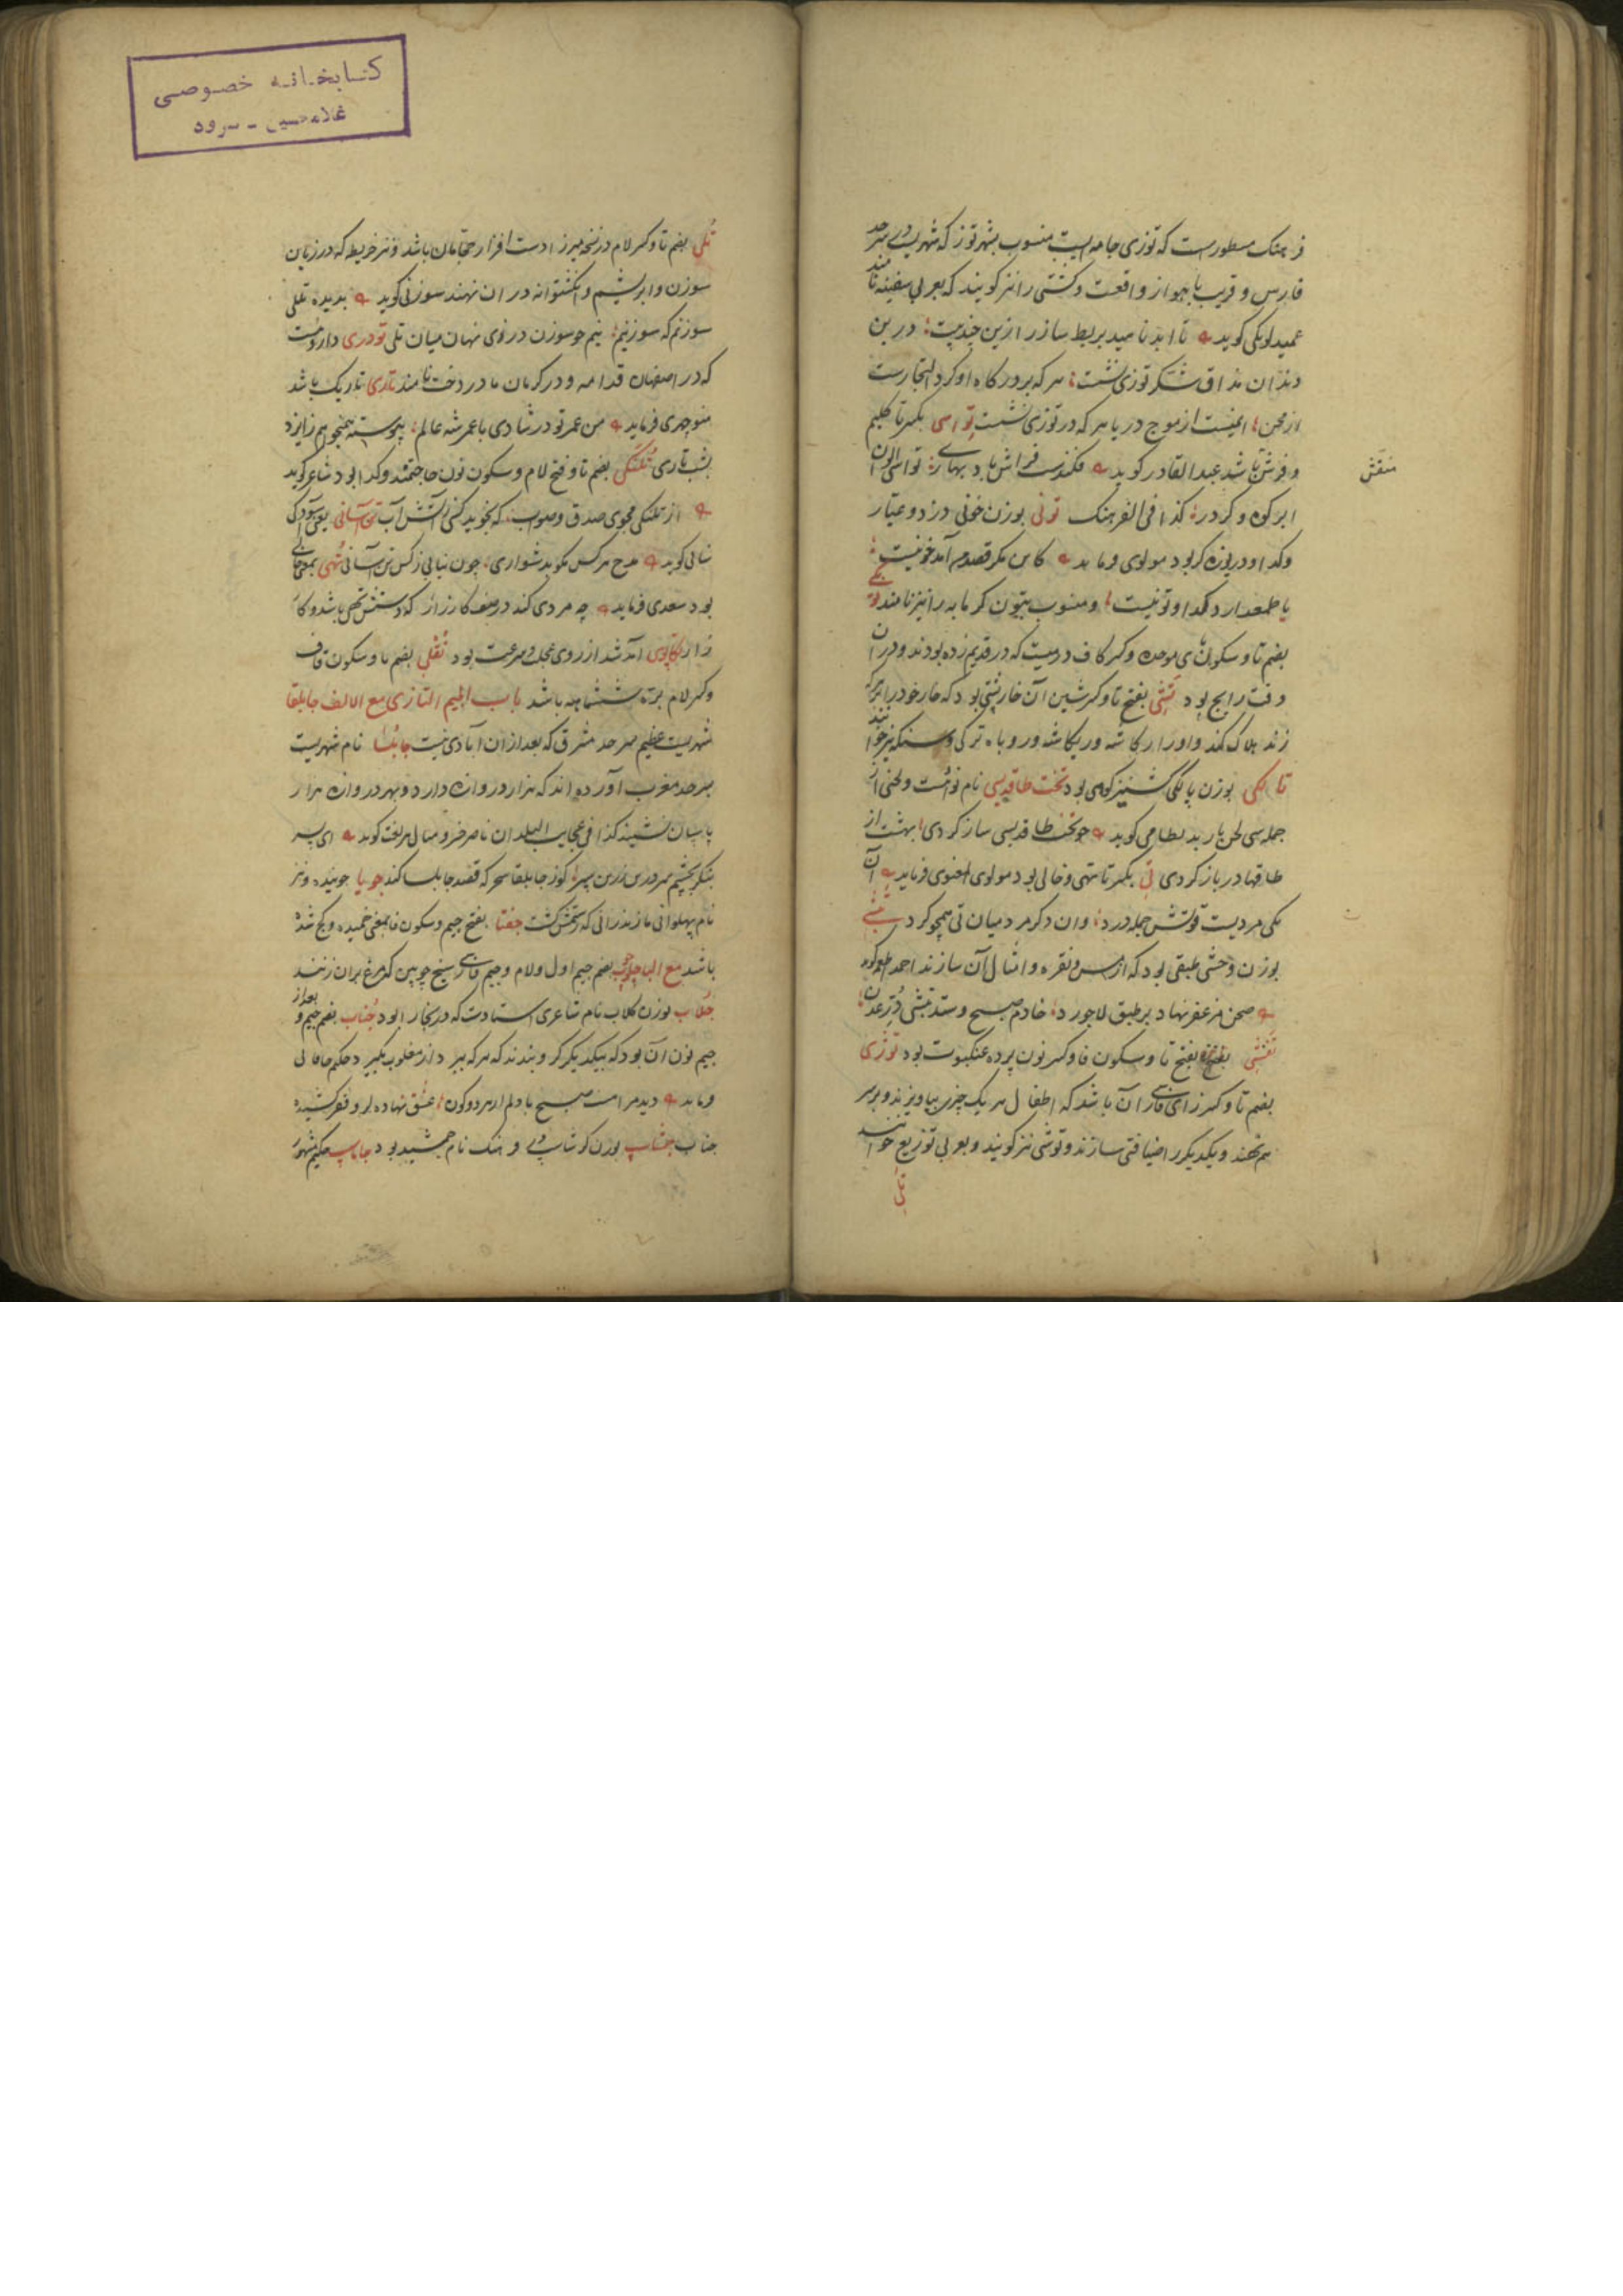 فرهنک مسطورست که توزی جامه ایست منسوب بشهر توز که شهریست در سرحد
فارس و قریب باهواز واقعست و کشتی را نیز کویند که بعربی سفینه نامند
عمید لوبکی کوید تا ابد ناهید بربط ساز را زین
دندان مذاق شکر توزی شست هر که بر درکاه او کرد التجا رست
از محن ایمنیست از موج دریا هر که در توزی نشست تواسی بکسر تا کلیم
و فرش باشد عبدالقادر کوید فکندست فراش باد بهاری تواسی الوان
منقش
ابر کوه و کردر کذا فی الفرهنک تونی بوزن خونی دزد و عیار
و کدا و دریوزه کر بود مولوی فرماید
یا طمع دارد کدا و تونیست و منسوب بتون کرمابه را نیز نامند
بضم تا و سکون بای موحده و کسر کاف درمیست که در قدیم زده بودند و در آن
وقت رایج بود تشی بفتح تا و کسر شین آن خارپشتی بود که خار خود را
زند هلاک کند و او را رکاشه و ریکاشه و روباه ترکی و سنکه نیز خوانند
تالکی بوزن پالکی کشنیز کوهی بود تخت طاقدیسی نام نوائست و لحنی از
جمله سی لحن باربد نظامی کوید چو تخت طاقدیسی ساز کردی بهشت از
طاقها در باز کردی تی بکسر تا تهی و خالی بود مولوی المعنوی فرماید آن
یکی مردیست قوتش جمله درد وان دکر مرد میان تی همچو کرد تبشی
بوزن وحشی طبقی بود که از مس و نقره و امثال آن سازند احمد اطعمه کوید
صحن مزعفر نهاد بر طبق لاجورد خادم صبح و ستد تبشی در عدن
تفنی بفتح تا و سکون فا و کسر نون پرده عنکبوت بود توژی
بضم تا و کسر زای فارسی آن باشد که اطفال هر یک چیزی بیاویزند و بر سر
هم نهند و یکدیکر را ضیافتی سازند و توشی نیز کویند و بعربی توزیع خوانند
تلی
کتابخانه خصوصی
غلامحسین - سرود
تلی بضم تا و کسر لام در نسخه میرزا دست افزار حجامان باشد و نیز خریطه که درزیان
سوزن و ابریشم و انکشتوانه در ان نهند سوزنی کوید بدیده تلی
سوزنم که سوزنیم نیم چو سوزن در زی نهان میان تلی تودری داروئست
که در اصفهان قدامه و در کرمان مادر دخت نامند تاری تاریک باشد
منوچهری فرماید من عمر تو در شادی با عمر شه عالم پیوسته همیخواهم زایزد
بشب تاری تلنکی بضم تا و فتح لام و سکون نون حاجتمند و کدا بود شاعر کوید
از تلنکی مجوی صدق و صواب که نجوید کسی ز آتش آب تن آسانی یعنی آسودکی
سنائی کوید مدح هر کس مکوید شواری چون نیابی ز کس تن آسانی تهی بمعنی خالی
بود سعدی فرماید چه مردی کند در صف کارزار که دستش تهی باشد و کا
رزار تکاپوی آمد شد از روی عجله و سرعت بود تقلی بضم تا و سکون قاف
و کسر لام بره ششماهه باشد باب الجیم التازی مع الالف جابلقا
شهریست عظیم سرحد مشرق که بعد از ان آبادی نیست جابلسا نام شهریست
بسرحد مغرب آورده اند که هزار دروازه دارد و بهر دروازه هزار
پاسبان نشیند کذا فی عجایب البلدان ناصر خسرو مثال هر لغت کوید ای پسر
بنکر بچشم سر درین زرین سپر کو ز جابلقا سحر که قصد جابلسا کند جویا جوینده و نیز
نام پهلوانی مازندرانی که رستمش کشت جفتا بفتح جیم و سکون فا بمعنی خمیده و کج شده
باشد مع الباء جلوب بضم جیم اول و لام و جیم فارسی سیخ چوبین که مرغ بران زنند
جلاب بوزن کلاب نام شاعری استادست که در بخارا بود جناب بضم جیم و بعد از
جیم نون آن بود که بیکدیکر کرو بندند که هر که ببرد از مغلوب بکیرد حکیم خاقانی
فرماید دیدمرا مست صبح با دلم از هر دو کون عشق نهاده کرو فقر کشیده
جناب جشاپ بوزن کرشاپ در فرهنک نام جمشید بود جاماسپ حکیم مشهور